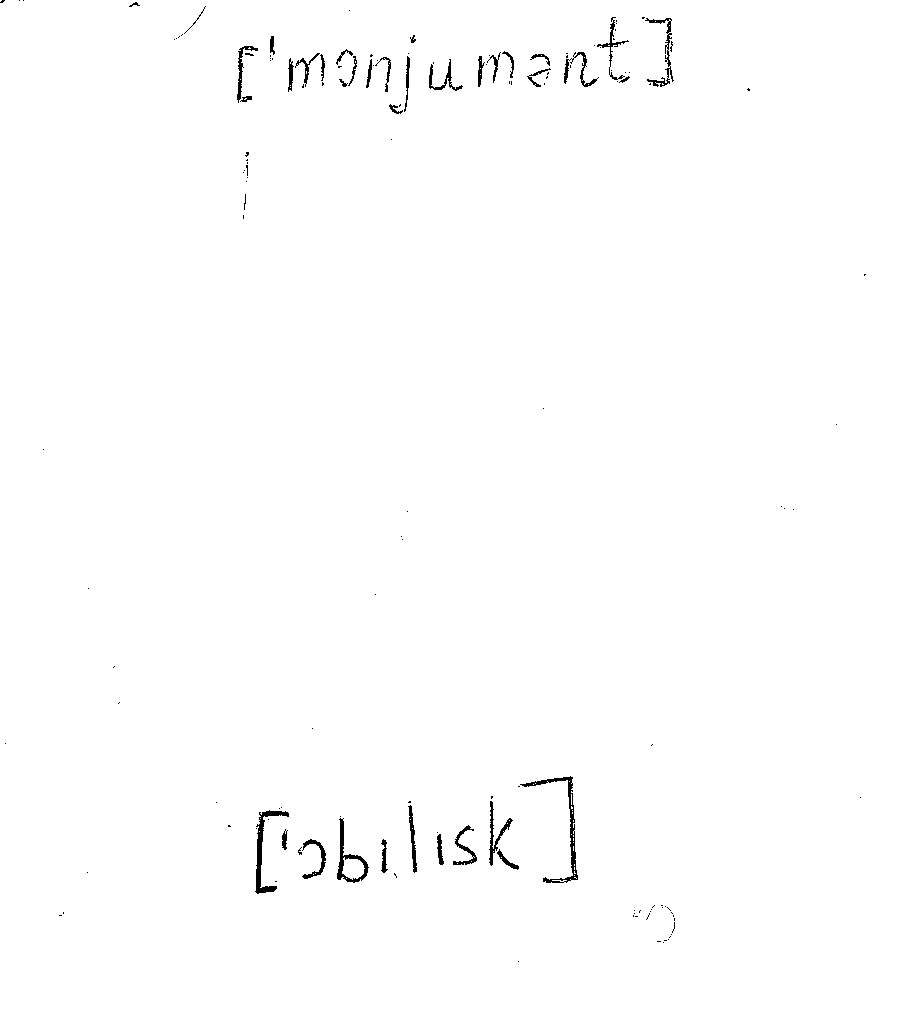 ['mɔnjumənt]
['ɔbılısk]